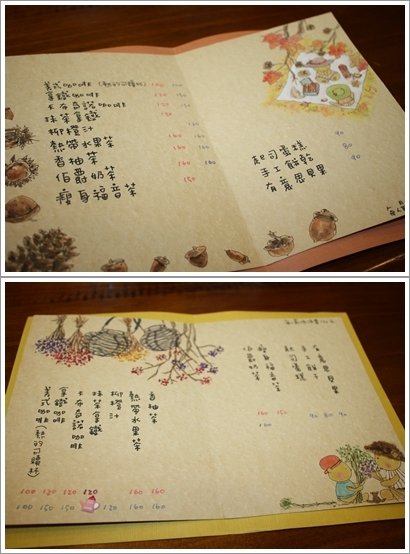 美式咖啡(熱的可續杯) 100 100
拿鐵咖啡 120 150
卡布奇諾咖啡 120 150
抹茶拿鐵 120
柳橙汁 150
熱帶水果茶 160 160
香柚茶 160 160
伯爵奶茶 160
瘦身福音茶 150
起司蛋糕 90
手工餅乾 80
有意思貝果 90
每人
美式咖啡(熱的可續杯) 100 100
拿鐵咖啡 120 150
卡布奇諾咖啡 120 150
抹茶拿鐵 120
柳橙汁
熱帶水果茶 160 160
香柚茶 160 160
伯爵奶茶 160 160
瘦身福音茶 150
起司蛋糕 90
手工餅干 80
有意思貝果 90